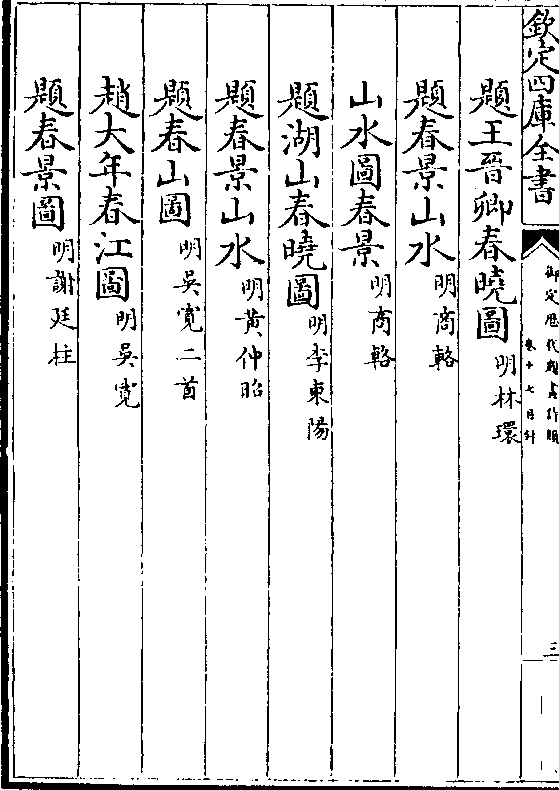 欽定四庫全書
御定歷代題畫詩類 卷十七目錄
三
題王晉卿春曉圖 明林環
題春景山水 明商輅
山水圖春景 明商輅
題湖山春曉圖 明李東陽
題春景山水 明黃仲昭
題春山圖 明吳寬二首
趙大年春江圖 明吳寬
題春景圖 明謝廷柱